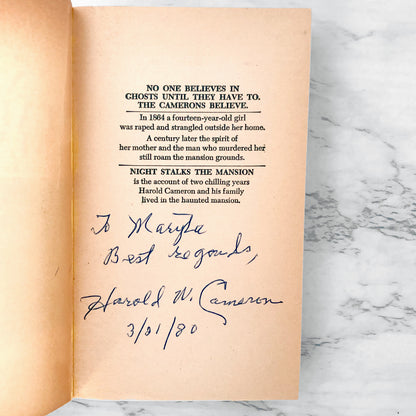 NO ONE BELIEVES IN
GHOSTS UNTIL THEY HAVE TO.
THE CAMERONS BELIEVE.
In 1864 a fourteen-year-old girl
was raped and strangled outside her home.
A century later the spirit of
her mother and the man who murdered her
still roam the mansion grounds.
NIGHT STALKS THE MANSION
is the account of two chilling years
Harold Cameron and his family
lived in the haunted mansion.
To
Best regards,
Harold W. Cameron
3/21/80